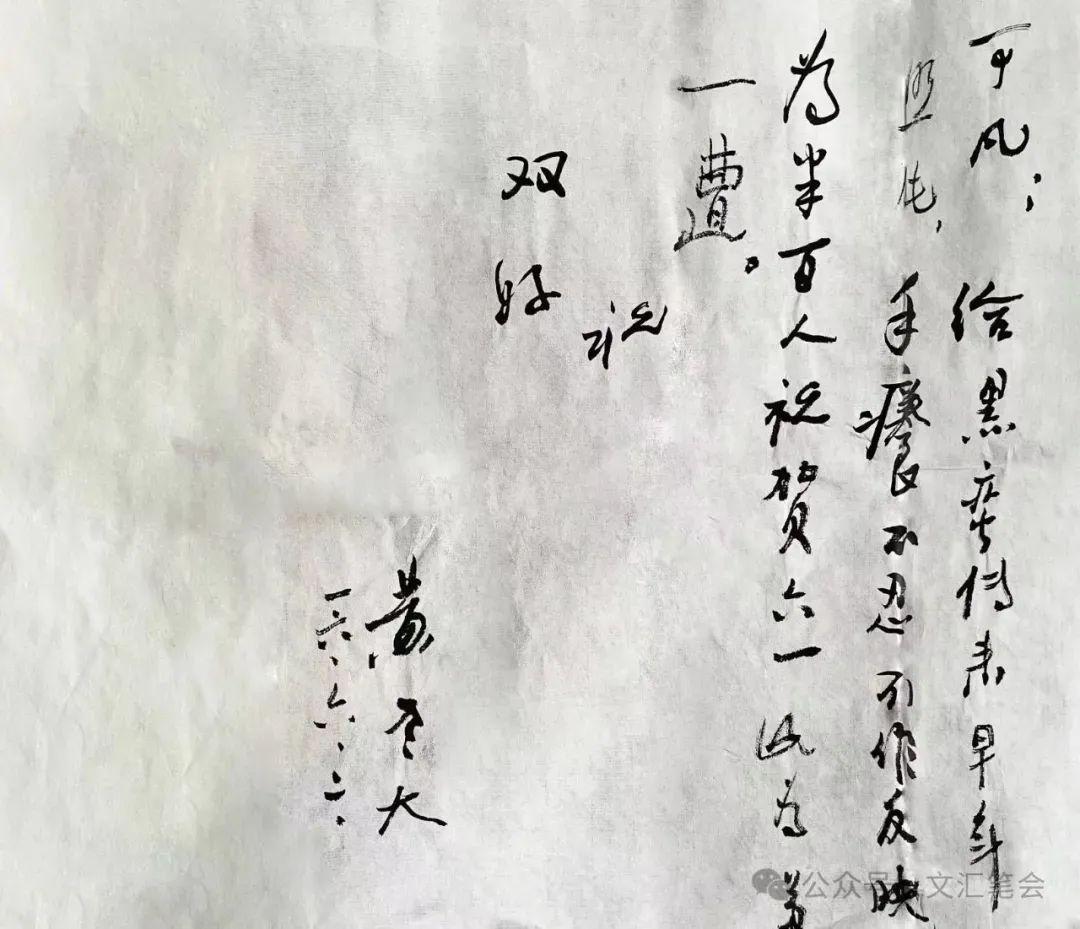 可凡：给黑蛮传来早年
照，手癢不忍不作反映
为半百人祝贺六一 此为第
一遭。
祝
双好
黄老大
一六.六.二.
公众号 文汇笔会